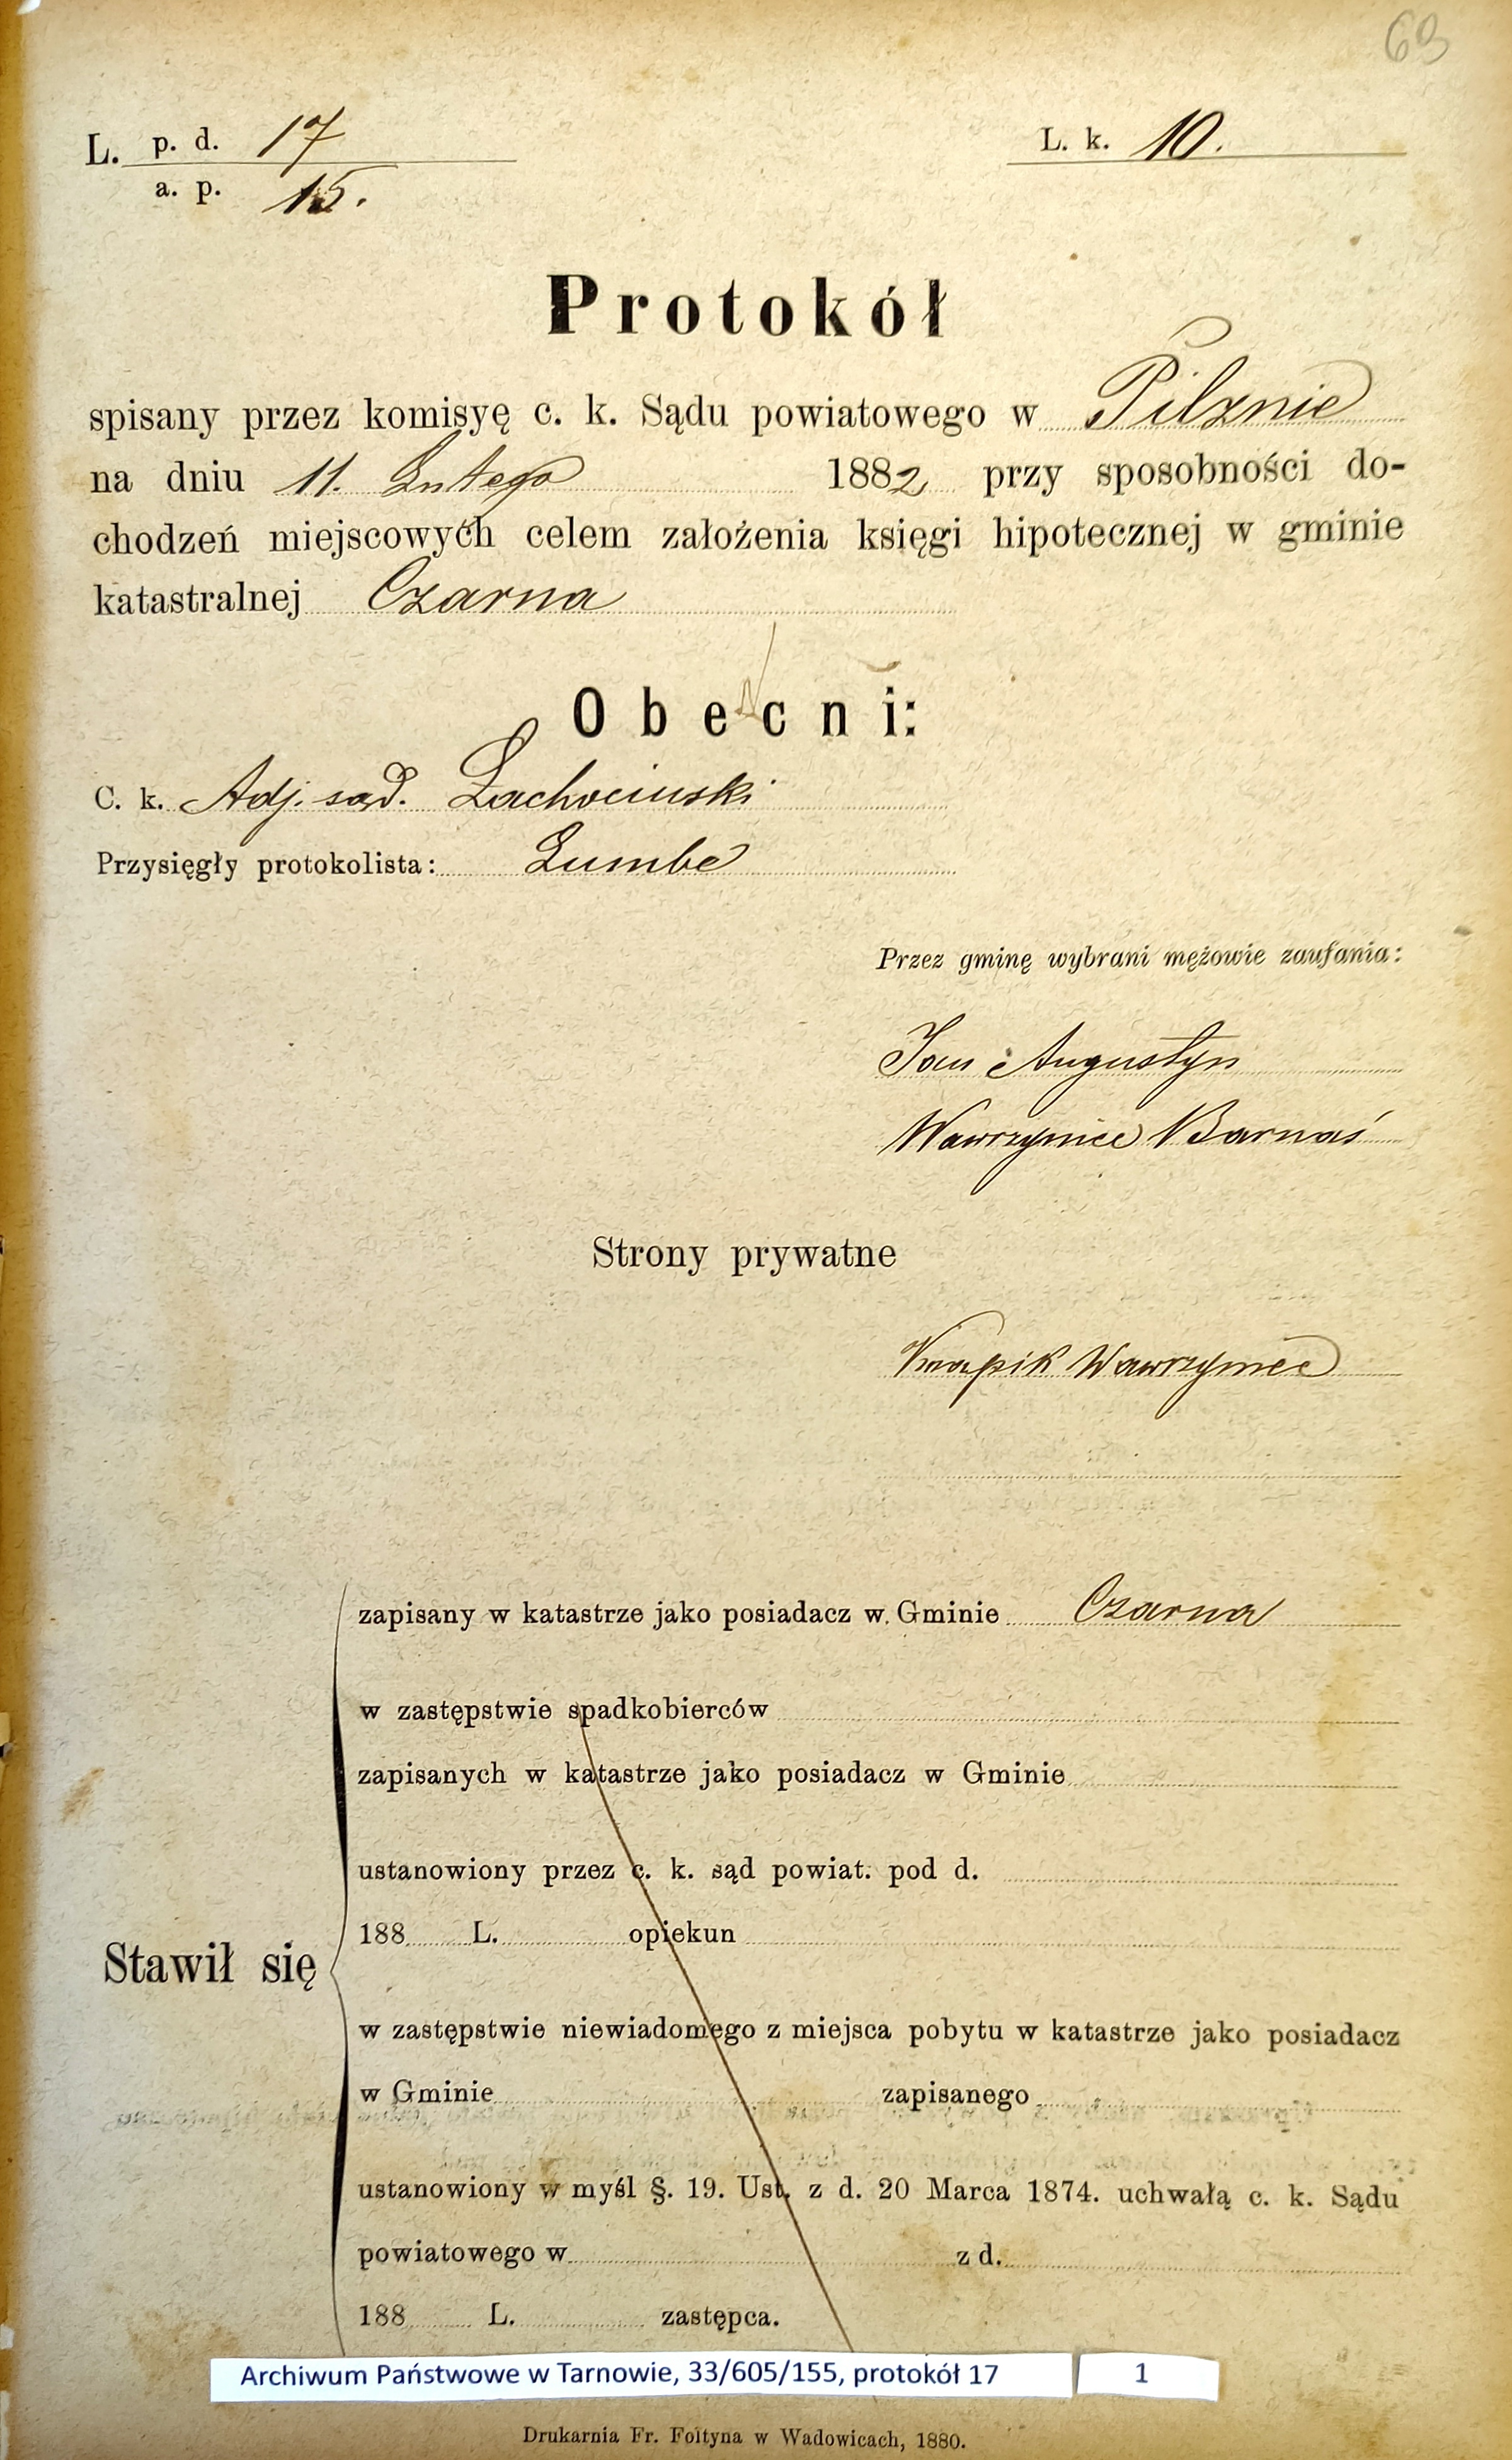 69
L. p. d. 17
a. p. 15.
L. k. 10.
Protokół
spisany przez komisyę c. k. Sądu powiatowego w Pilznie
na dniu 11. Lutego 1882 przy sposobności do-
chodzeń miejscowych celem założenia księgi hipotecznej w gminie
katastralnej Czarna
Obecni:
C. k. Adj. sąd. Lachociński
Przysięgły protokolista: Lumbe
Przez gminę wybrani mężowie zaufania:
Jan Augustyn
Wawrzyniec Barnaś
Strony prywatne
Knapik Wawrzyniec
zapisany w katastrze jako posiadacz w Gminie Czarna
w zastępstwie spadkobierców
zapisanych w katastrze jako posiadacz w Gminie
ustanowiony przez c. k. sąd powiat. pod d.
188 L. opiekun
Stawił się
w zastępstwie niewiadomego z miejsca pobytu w katastrze jako posiadacz
w Gminie zapisanego
ustanowiony w myśl §. 19. Ust. z d. 20 Marca 1874. uchwałą c. k. Sądu
powiatowego w z d.
188 L. zastępca.
Archiwum Państwowe w Tarnowie, 33/605/155, protokół 17 1
Drukarnia Fr. Foltyna w Wadowicach, 1880.